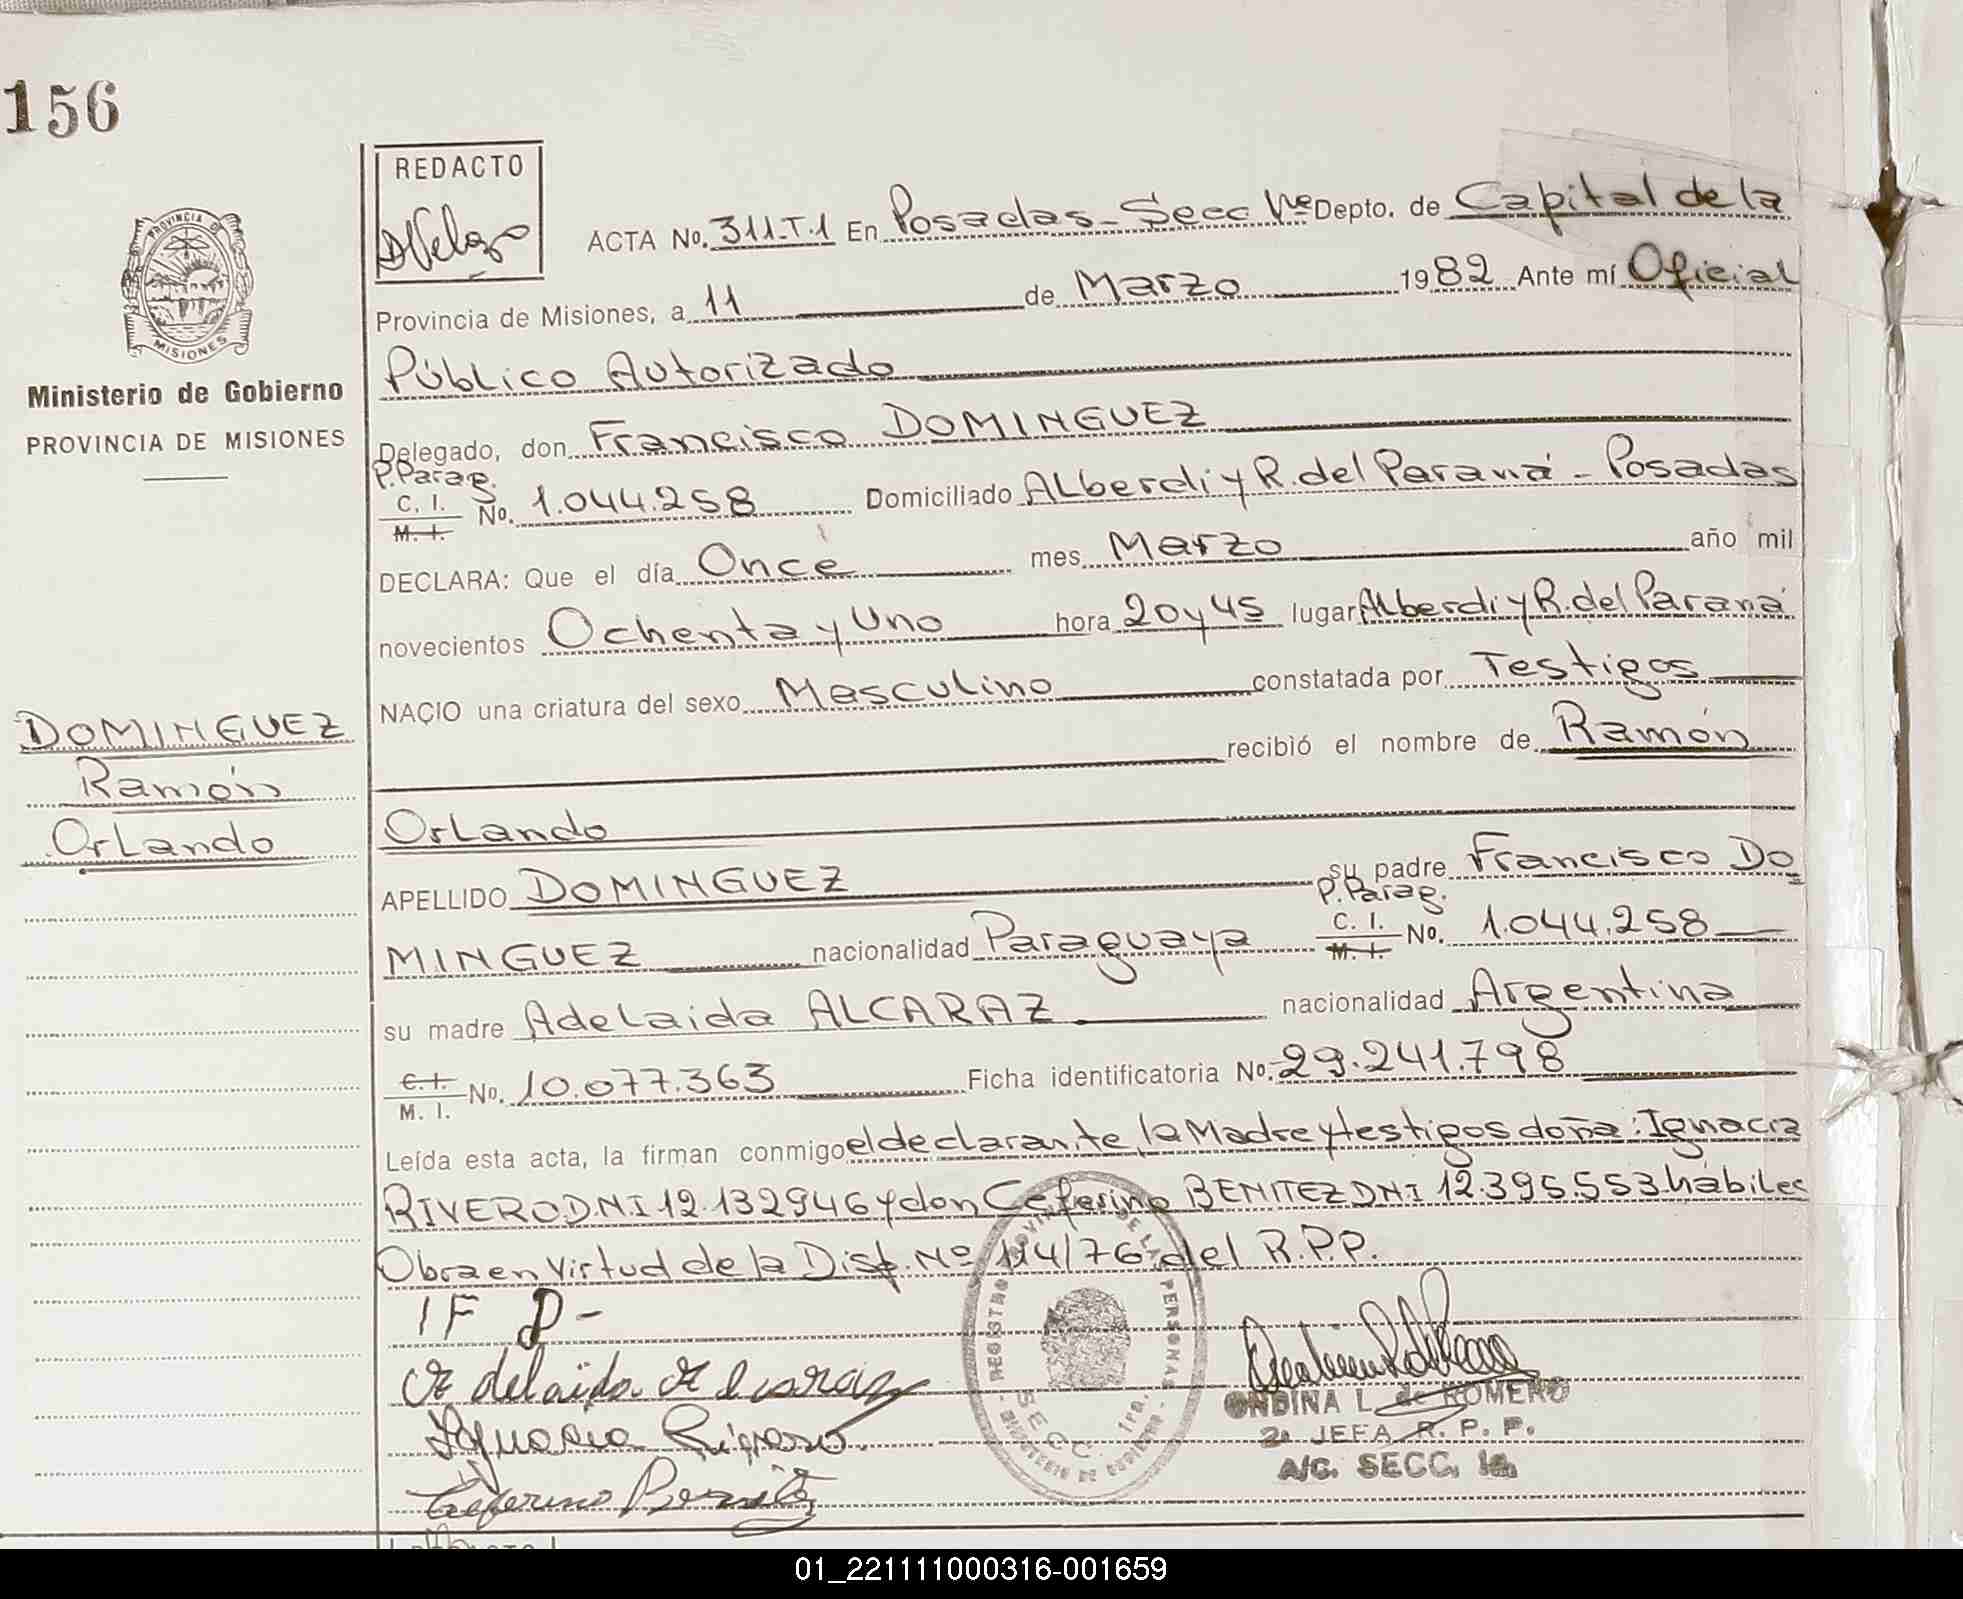 156
REDACTO
DVelozo
PROVINCIA D
MISIONES
Ministerio de Gobierno
PROVINCIA DE MISIONES
ACTA No. 311-T.1 En Posadas - Secc 1ra Depto. de Capital de la
Provincia de Misiones, a 11 de Marzo 1982 Ante mí Oficial
Público Autorizado
Delegado, don Francisco DOMINGUEZ
P. Parag.
C. I. / M. I. No. 1.044.258 Domiciliado ALberdi y R. del Paraná - Posadas
DECLARA: Que el día Once mes Marzo año mil
novecientos Ochenta y Uno hora 20 y 45 lugar ALberdi y R. del Paraná
NACIO una criatura del sexo Masculino constatada por Testigos
recibió el nombre de Ramón
Orlando
DOMINGUEZ
Ramón
Orlando
APELLIDO DOMINGUEZ su padre Francisco DO
P. Parag.
MINGUEZ nacionalidad Paraguaya C. I. / M. I. No. 1.044.258
su madre Adelaida ALCARAZ nacionalidad Argentina
C. I. / M. I. No. 10.077.363 Ficha identificatoria No. 29.241.798
Leída esta acta, la firman conmigo el declarante, la Madre y testigos doña: Ignacia
RIVERO D.N.I 12.132946 y don Ceferino BENITEZ DN.I 12.395.553 hábiles
Obra en virtud de la Disp. Nº 114/76 del R.P.P.
IF D-
Adelaida Alcaraz
Ignacia Rivero
Ceferino Benitez
REGISTRO PROVINCIAL DE LAS PERSONAS
SECC. 1ra.
MINISTERIO DE GOBIERNO
ONDINA L. de ROMERO
2a JEFA R. P. P.
A/C. SECC. 1a.
01_221111000316-001659